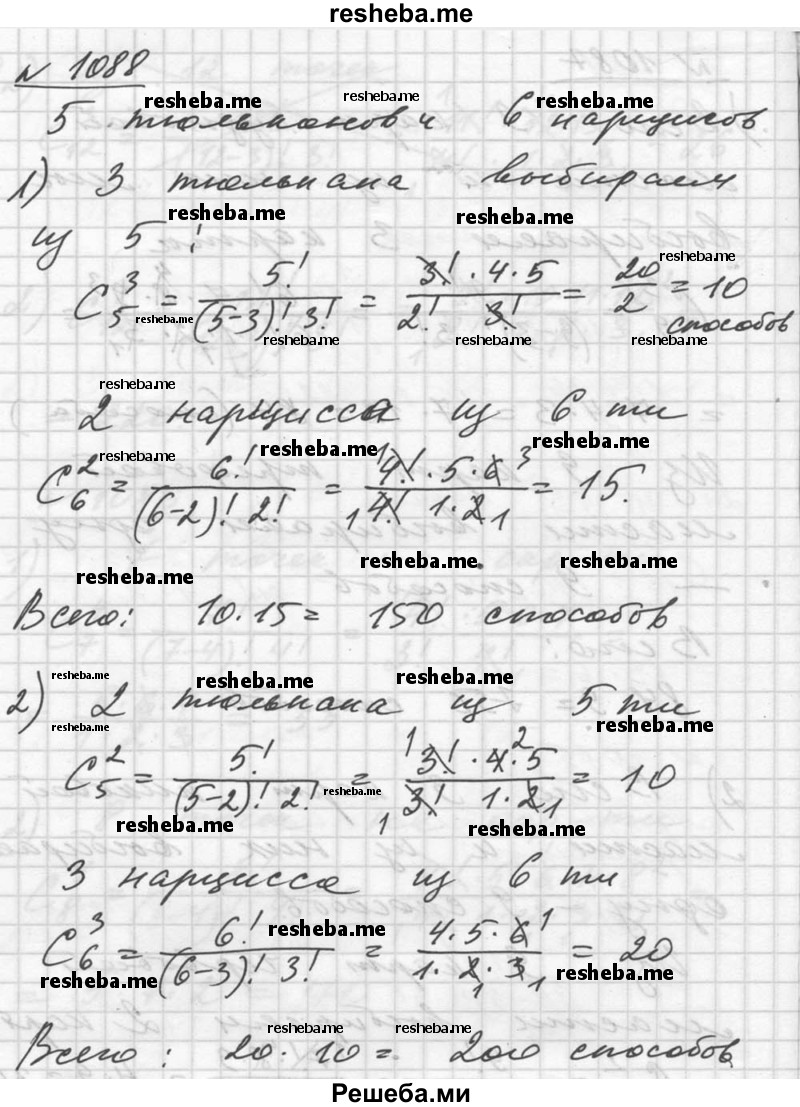 resheba.me
№ 1088
resheba.me resheba.me resheba.me
5 тюльпанов и 6 нарцисов
1) 3 тюльпана выбираем
resheba.me resheba.me
из 5 :
resheba.me
C₅³ = 5! / (5-3)! 3! = 3! · 4 · 5 / 2! 3! = 20 / 2 = 10
resheba.me
способов
resheba.me resheba.me resheba.me
resheba.me
2 нарцисса из 6 ти
resheba.me resheba.me resheba.me
C₆² = 6! / (6-2)! 2! = 4! · 5 · 6 / 4! 1 · 2 = 15.
resheba.me resheba.me
resheba.me
Всего: 10 · 15 = 150 способов
resheba.me resheba.me resheba.me
2) 2 тюльпана из 5 ти
resheba.me resheba.me
C₅² = 5! / (5-2)! 2! = 3! · 4 · 5 / 3! 1 · 2 = 10
resheba.me
resheba.me resheba.me
3 нарцисса из 6 ти
resheba.me
C₆³ = 6! / (6-3)! 3! = 4 · 5 · 6 / 1 · 2 · 3 = 20
resheba.me resheba.me
resheba.me resheba.me
Всего: 20 · 10 = 200 способов
Решеба.ми